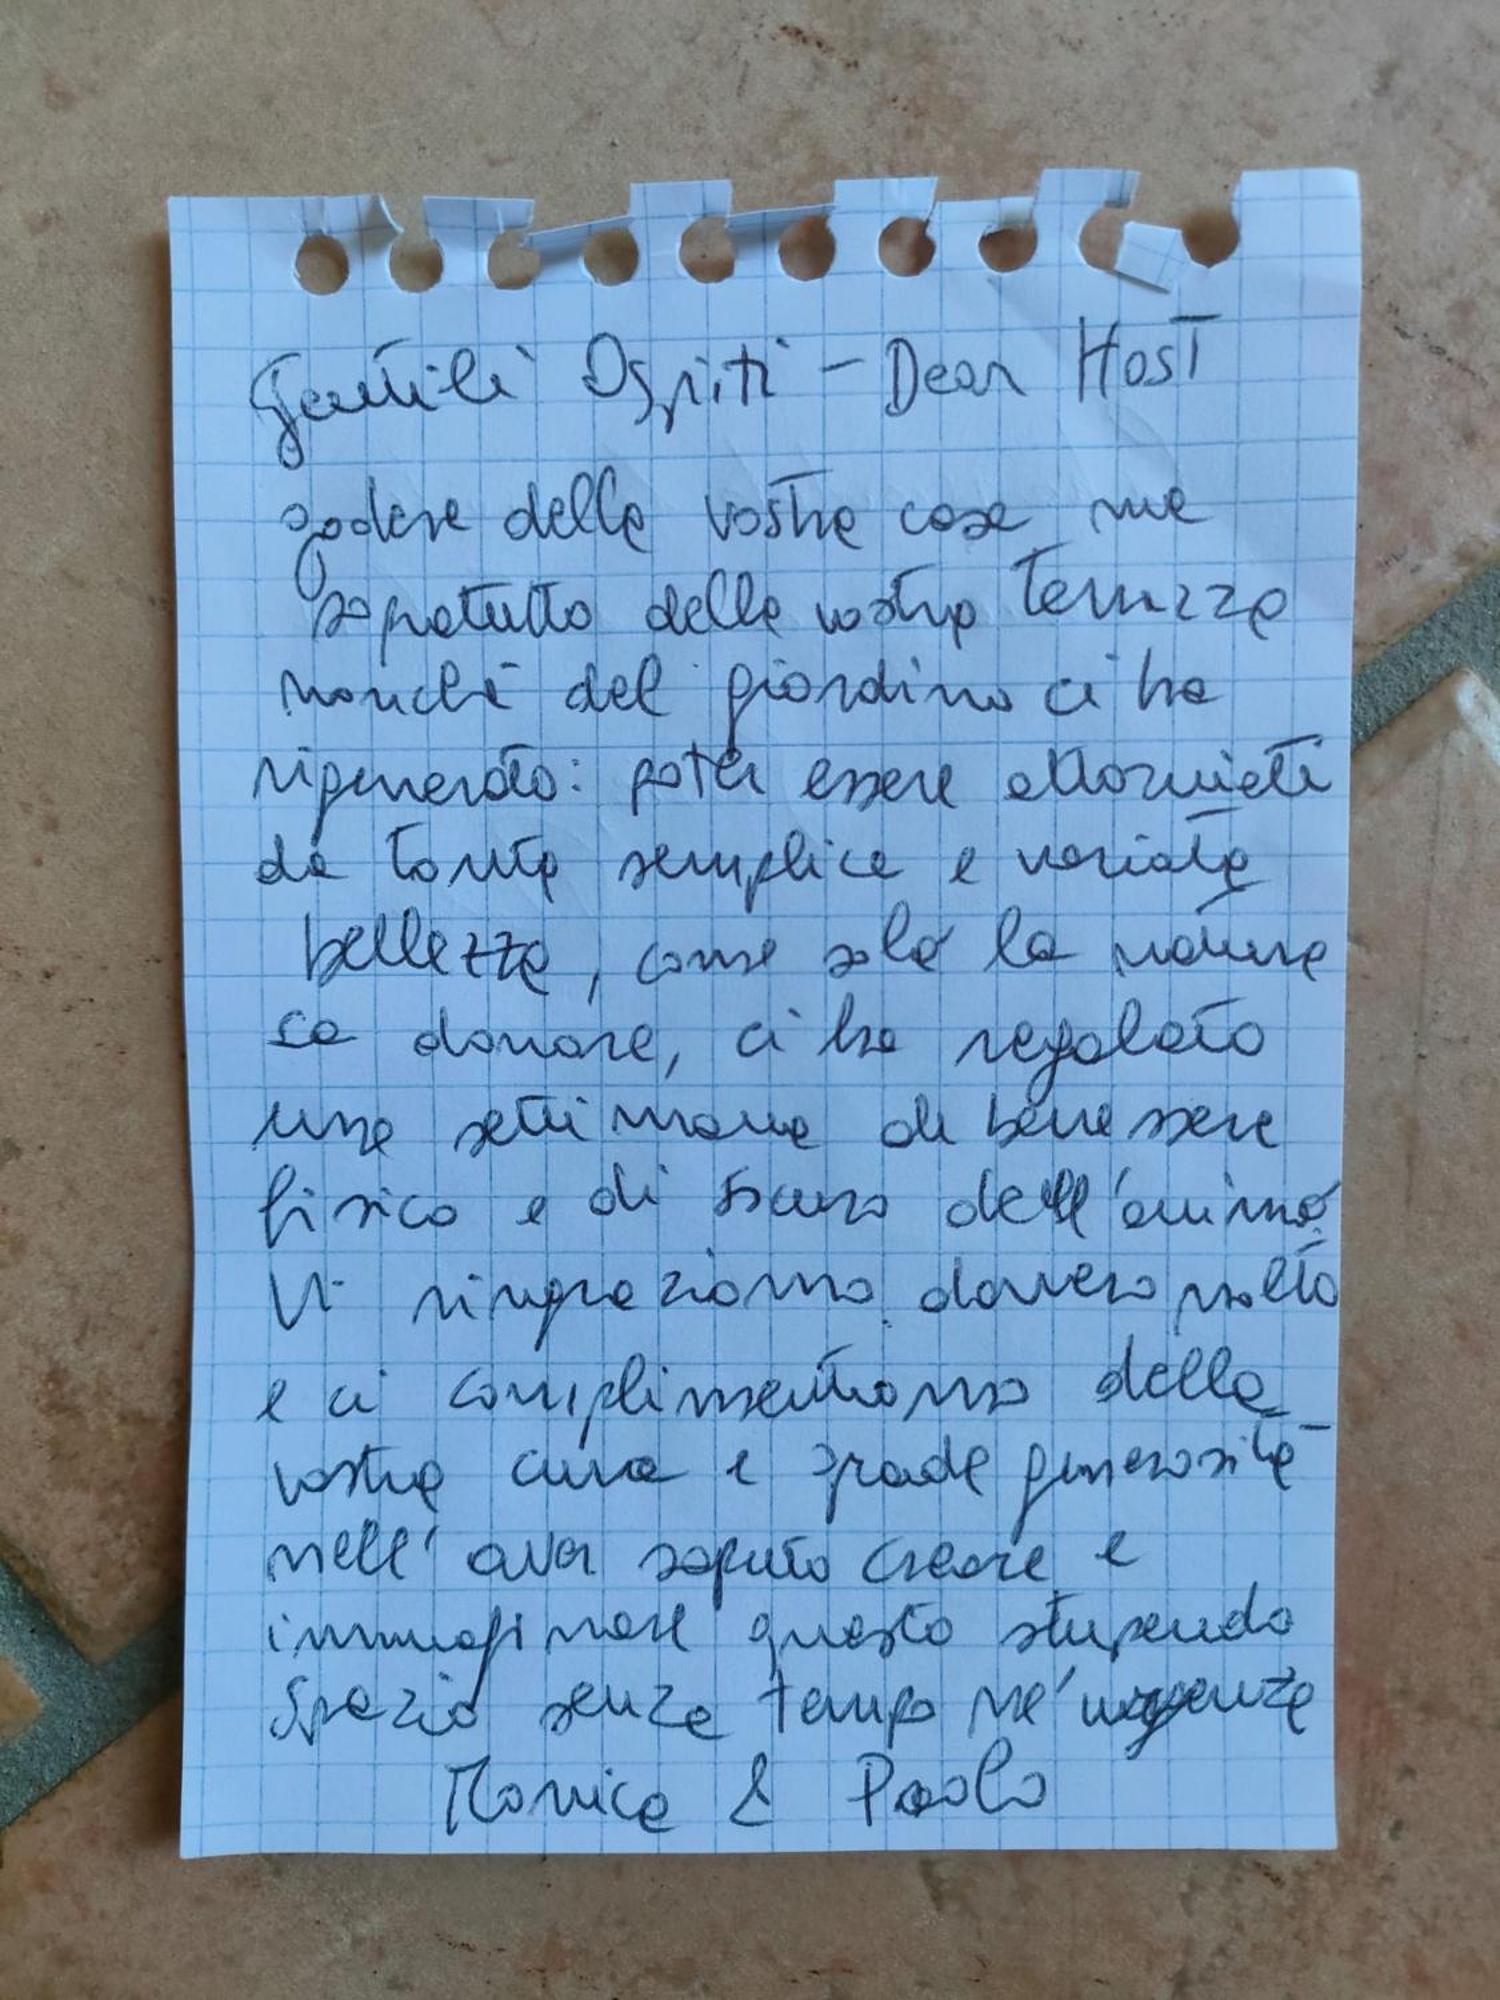 Gentili Ospiti - Dear Host
godere della vostra casa ma
sopratutto della vostra terrazza
nonché del giardino ci ha
rigenerato: poter essere attorniati
da tanta semplice e variata
bellezza, come solo la natura
sa donare, ci ha regalato
una settimana di benessere
fisico e di dell'anima
Vi ringraziamo davvero molto
e ci complimentiamo della
vostra cura e grade generosità
nell'aver saputo creare e
immaginare questo stupendo
Spazio senza tempo né urgenza
Monica & Paolo